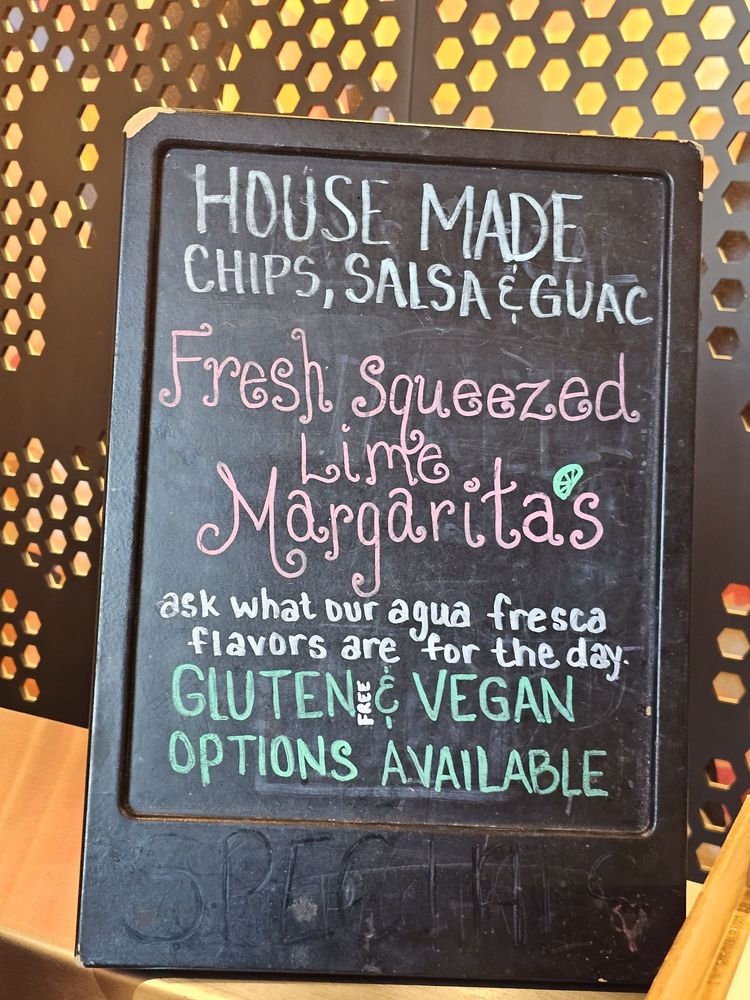 HOUSE MADE
CHIPS, SALSA & GUAC
Fresh squeezed
Lime
Margarita's
ask what our agua fresca
flavors are for the day.
GLUTEN FREE & VEGAN
OPTIONS AVAILABLE
SPECIALS